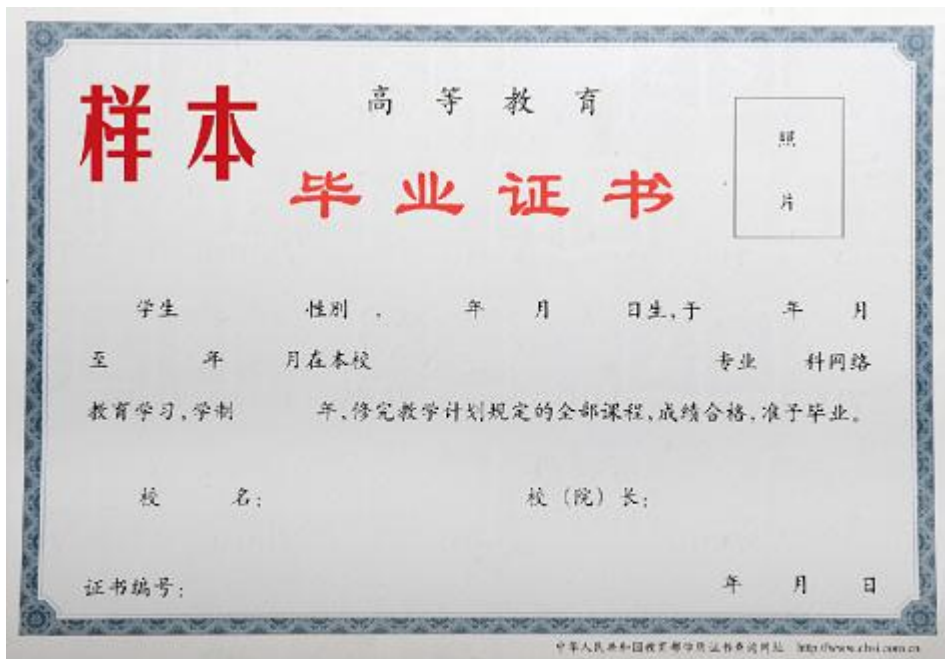 样本
高等教育
毕业证书
照
片
学生 性别 , 年 月 日生,于 年 月
至 年 月在本校 专业 科网络
教育学习,学制 年,修完教学计划规定的全部课程,成绩合格,准予毕业。
校 名: 校(院)长:
证书编号: 年 月 日
中华人民共和国教育部学历证书查询网址 http://www.chsi.com.cn